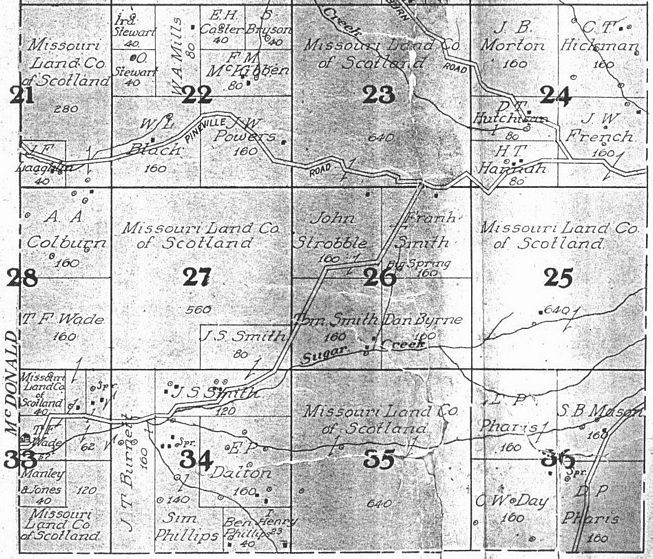 Missouri
Land Co
of Scotland
21
280
Ira
Stewart
40
O
Stewart
40
W.A. Mills
80
E.H.
Caster
40
S
Bryson
40
F M
McKibben
80
22
W L
Black
160
PINEVILLE
J W
Powers
160
ROAD
J F
40
Creek
Missouri Land Co
of Scotland
23
640
ROAD
J. B.
Morton
160
C. T.
Hickman
160
24
D T
Hutchison
80
H T
Hannah
80
J W
French
160
A A
Colburn
160
28
T F Wade
160
Missouri Land Co.
of Scotland
27
560
J.S. Smith
80
John
Strobble
160
Frank
Smith
Big Spring
160
26
Tom. Smith
160
Dan Byrne
160
Sugar Creek
Missouri Land Co
of Scotland
25
640
McDONALD
Missouri
Land Co
of Scotland
40
Spr.
T F
Wade
62
33
Manley
& Jones
40
120
Missouri
Land Co
of Scotland
J. T. Burgett
160
J S Smith
120
34
Spr.
E P
Dalton
160
140
Sim
Phillips
Ben
Phillips
40
Henry
Missouri Land Co
of Scotland
35
640
L P
Pharis
160
S.B. Mason
160
36
Spr.
C W Day
160
D P
Pharis
160